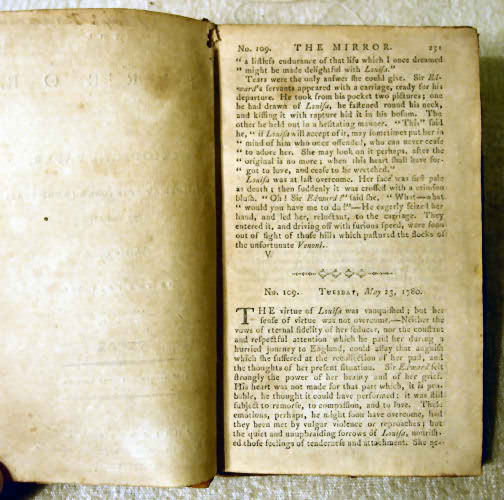 No. 109. THE MIRROR. 231
“ a listless endurance of that life which I once dreamed
“ might be made delightful with Louisa.”
Tears were the only answer she could give. Sir Ed-
ward's servants appeared with a carriage, ready for his
departure. He took from his pocket two pictures; one
he had drawn of Louisa, he fastened round his neck,
and kissing it with rapture hid it in his bosom. The
other he held out in a hesitating manner. “ This” said
he, “ if Louisa will accept of it, may sometimes put her in
“ mind of him who once offended, who can never cease
“ to adore her. She may look on it perhaps, after the
“ original is no more; when this heart shall have for-
“ got to love, and cease to be wretched.”
Louisa was at last overcome. Her face was first pale
as death; then suddenly it was crossed with a crimson
blush. “ Oh! Sir Edward!” said she. “ What—what
“ would you have me to do!”—He eagerly seized her
hand, and led her, reluctant, to the carriage. They
entered it, and driving off with furious speed, were soon
out of sight of those hills which pastured the flocks of
the unfortunate Venoni.
V
No. 109. TUESDAY, May 23, 1780.
THE virtue of Louisa was vanquished; but her
sense of virtue was not overcome.—Neither the
vows of eternal fidelity of her seducer, nor the constant
and respectful attention which he paid her during a
hurried journey to England, could allay that anguish
which she suffered at the recollection of her past, and
the thoughts of her present situation. Sir Edward felt
strongly the power of her beauty and of her grief.
His heart was not made for that part which, it is pro-
bable, he thought it could have performed: it was still
subject to remorse, to compassion, and to love. These
emotions, perhaps, he might soon have overcome, had
they been met by vulgar violence or reproaches; but
the quiet and unupbraiding sorrows of Louisa, nourish-
ed those feelings of tenderness and attachment. She ne-